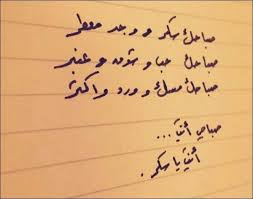 صباحك سكر و وجد معطر
صباحك حب و شوق و عنبر
صباحك مسك و ورد و اكثر
صباحي أنت ...
أنت يا سكر .